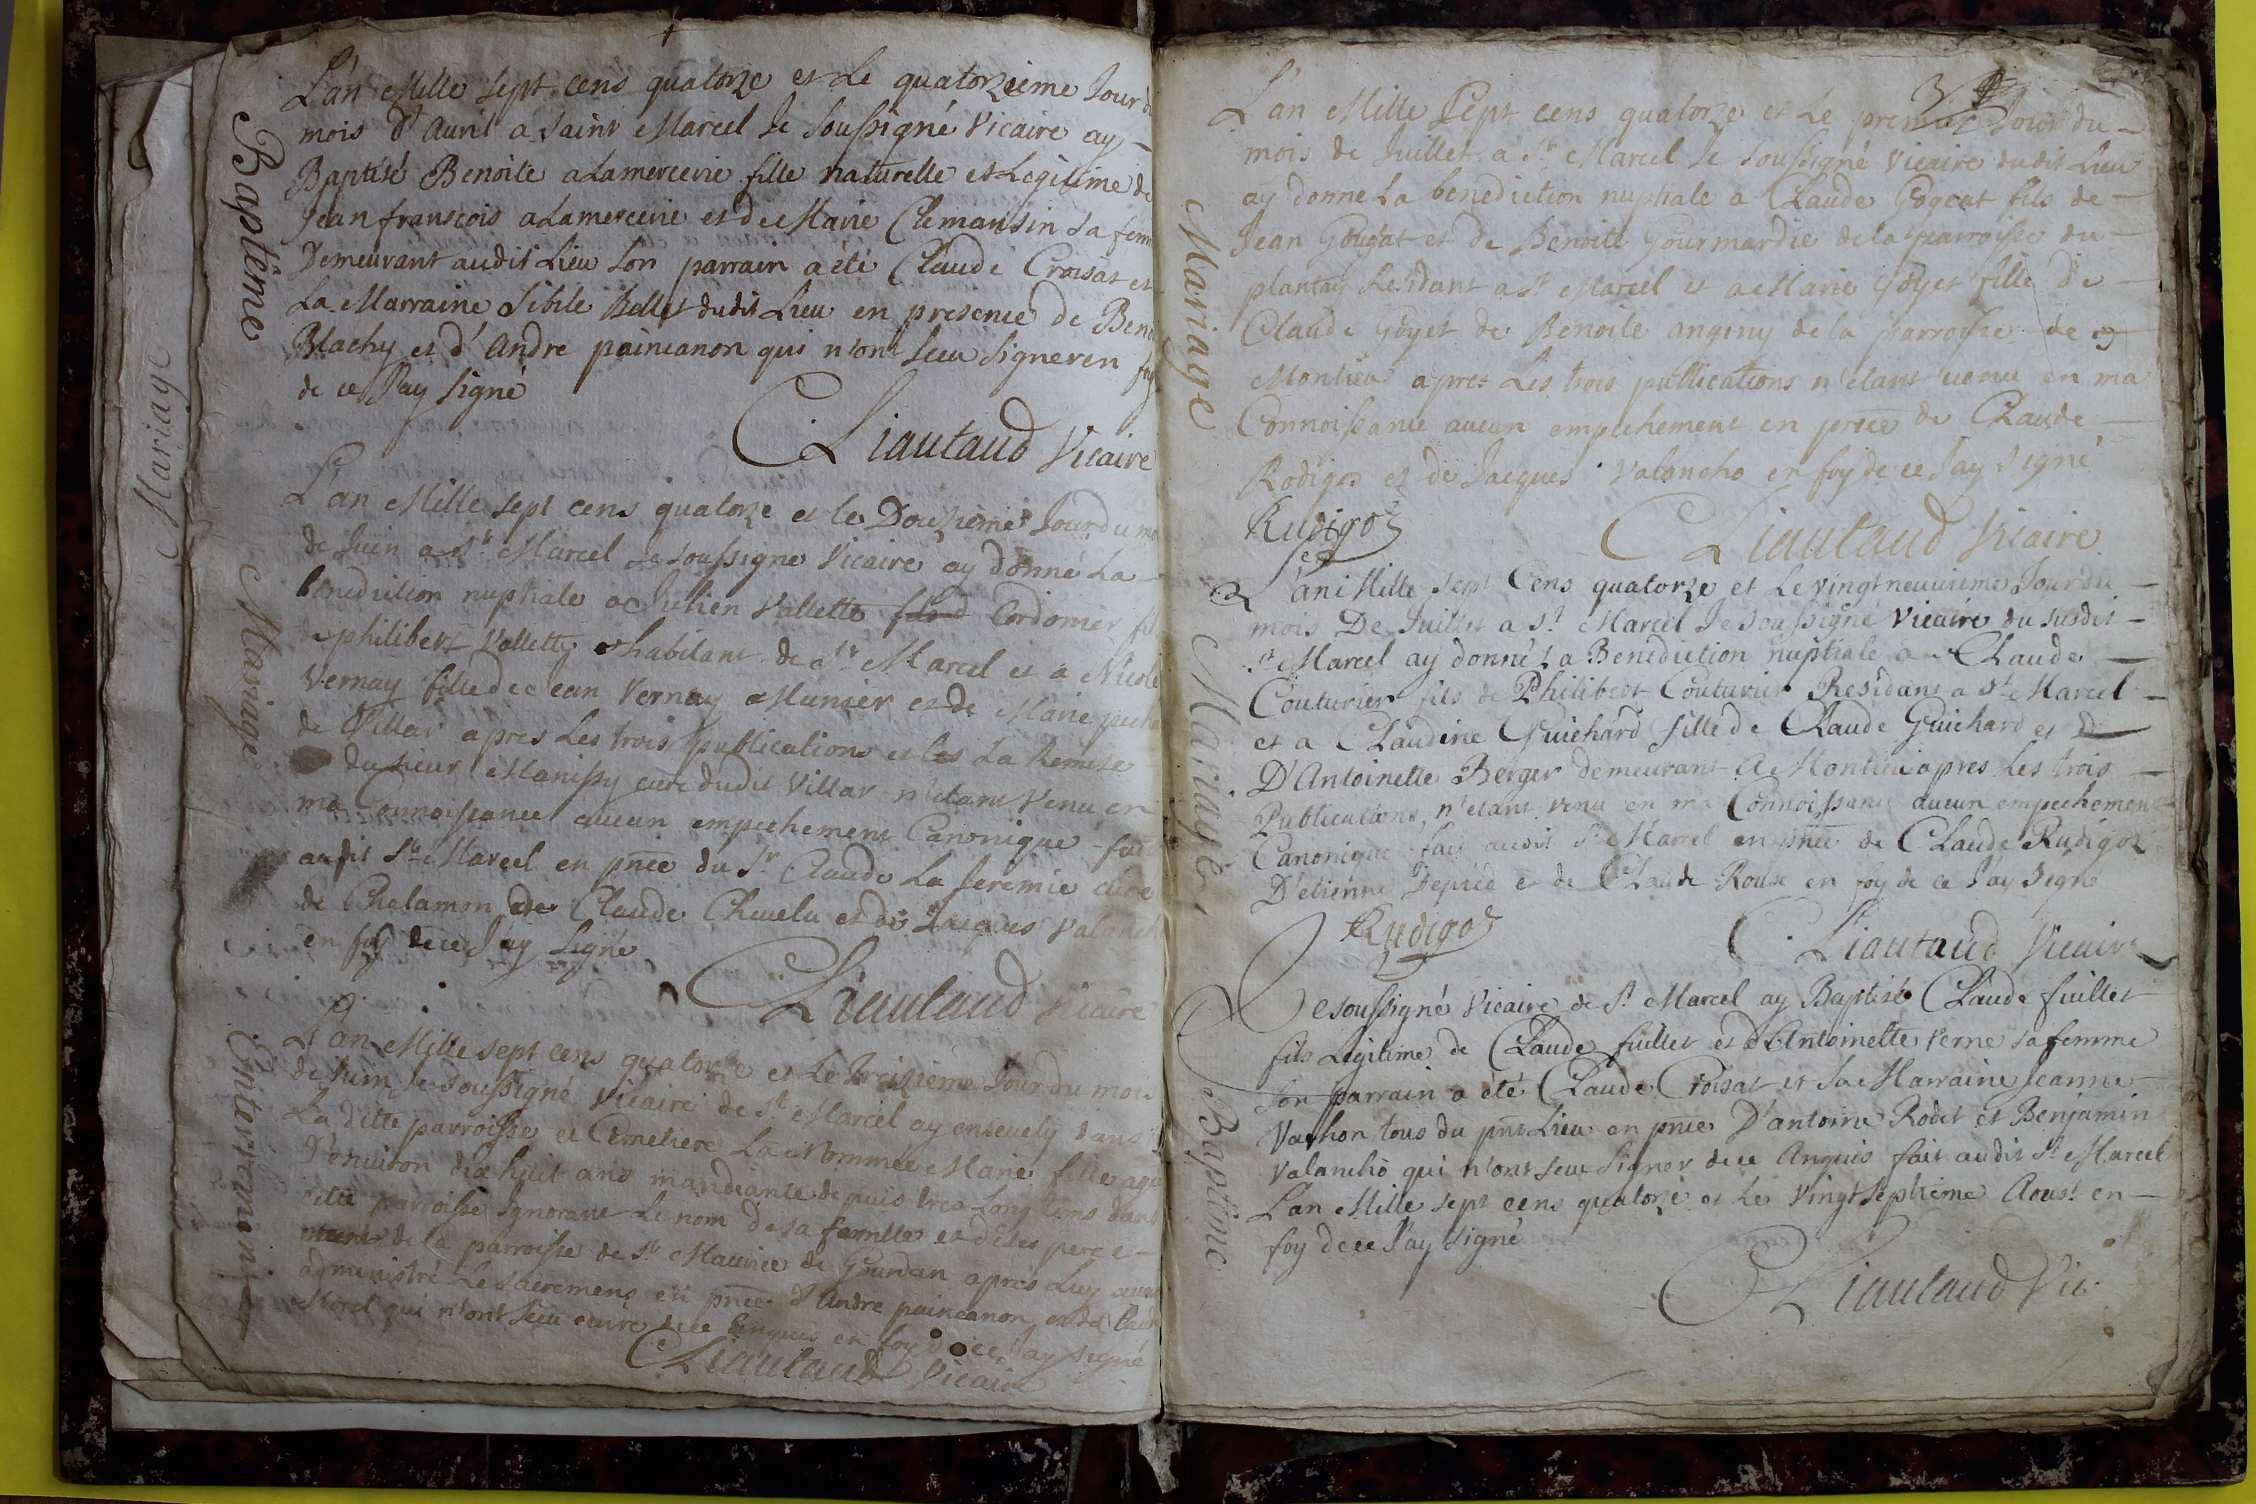 Baptême
L'an Mille sept cens quatorze et Le quatorzieme Jour du
mois d'Avril a Saint Marcel Je soussigné Vicaire ay
Baptisé Benoite alamercerie fille naturelle et Legitime de
Jean francois alamercerie et de Marie Clemansin sa femme
Demeurant audit Lieu son parrain a été Claude Croisat et
La Marraine Sibile Bellet dudit Lieu en presence de Ben
Blachy et d'Andre paincanon qui n'ont sceu signer en foy
de ce J'ay signé
Liautaud Vicaire
Mariage
L'an Mille sept cens quatorze et le Douzieme Jour du mo
de Juin a St Marcel Je soussigné Vicaire ay donné La
benediction nuptiale a Julien Vallette Cordonier fil
de philibert Vallette habitant de St Marcel et a Nicole
Vernay fille de Jean Vernay Munier et de Marie
de Villar apres Les trois publications et La Remise
du sieur Manissy curé dudit Villar n'etant Venu en
ma Connoissance aucun empechement Canonique fait
audit St Marcel en pnce du Sr Claude La Jeremie curé
de Chalamon de Claude Chevelu et de Jacques Valanch
en foy de ce J'ay signé
Liautaud Vicaire
Enterrement
L'an Mille sept cens quatorze et Le treizieme Jour du mois
de Juin Je soussigné Vicaire de St Marcel ay ensevely dans
La ditte parroisse et Cemetiere La Nommée Marie fille agé
D'environ dix huit ans mandiante depuis tres Long tems dans
ditte parroisse Ignorant Le nom de sa famille et de ses pere e
mere de la parroisse de St Maurice de Gourdan apres Luy avoir
administré Le sacremens en pnce d'Andre paincanon et de Claude
Morel qui n'ont sceu ecrire de ce Enquis en foy de ce J'ay signé
Liautaud Vicaire
Mariage
3
L'an Mille Sept cens quatorze et Le premier Jour du
mois de Juillet a St Marcel Je soussigné Vicaire dudit Lieu
ay donné La benediction nuptiale a Claude Gogeat fils de
Jean Gougat et de Benoite Gourmardie de la parroisse du
plantay Residant a St Marcel et a Marie Goyet fille de
Claude Goyet de Benoite anginy de la parroisse de
Montieu apres Les trois publications n'etant venu en ma
Connoissance aucun empechement en pnce de Claude
Rodigoz et de Jacques Valancho en foy de ce J'ay signé
Rudigoz
Liautaud Vicaire
Mariage
L'an Mille sept Cens quatorze et Le vingt neuvieme Jour du
mois De Juillet a St Marcel Je soussigné Vicaire du susdit
St Marcel ay donné La Benediction nuptiale a Claude
Couturier fils de Philibert Couturier Residant a St Marcel
et a Claudine Guichard fille de Claude Guichard et
D'Antoinette Berger demeurant A Montieu apres Les trois
Publications, n'etant venu en ma Connoissance aucun empechement
Canonique fait audit St Marcel en pnce de Claude Rudigoz
D'etienne Depréd et de Claude Rouse en foy de ce J'ay Signé
Rudigoz
Liautaud Vicaire
Baptême
Je soussigné Vicaire de St Marcel ay Baptisé Claude fuillet
fils Legitime de Claude fuillet et d'Antoinette verne sa femme
son parrain a été Claude Croisat et sa Marraine Jeanne
Vachon tous du pnt Lieu en pnce D'antoine Rodet et Benjamin
Valancho qui n'ont sceu signer de ce Anquis fait audit St Marcel
L'an Mille sept cens quatorze et Le vingt septieme Aoust en
foy de ce J'ay signé
Liautaud Vic.